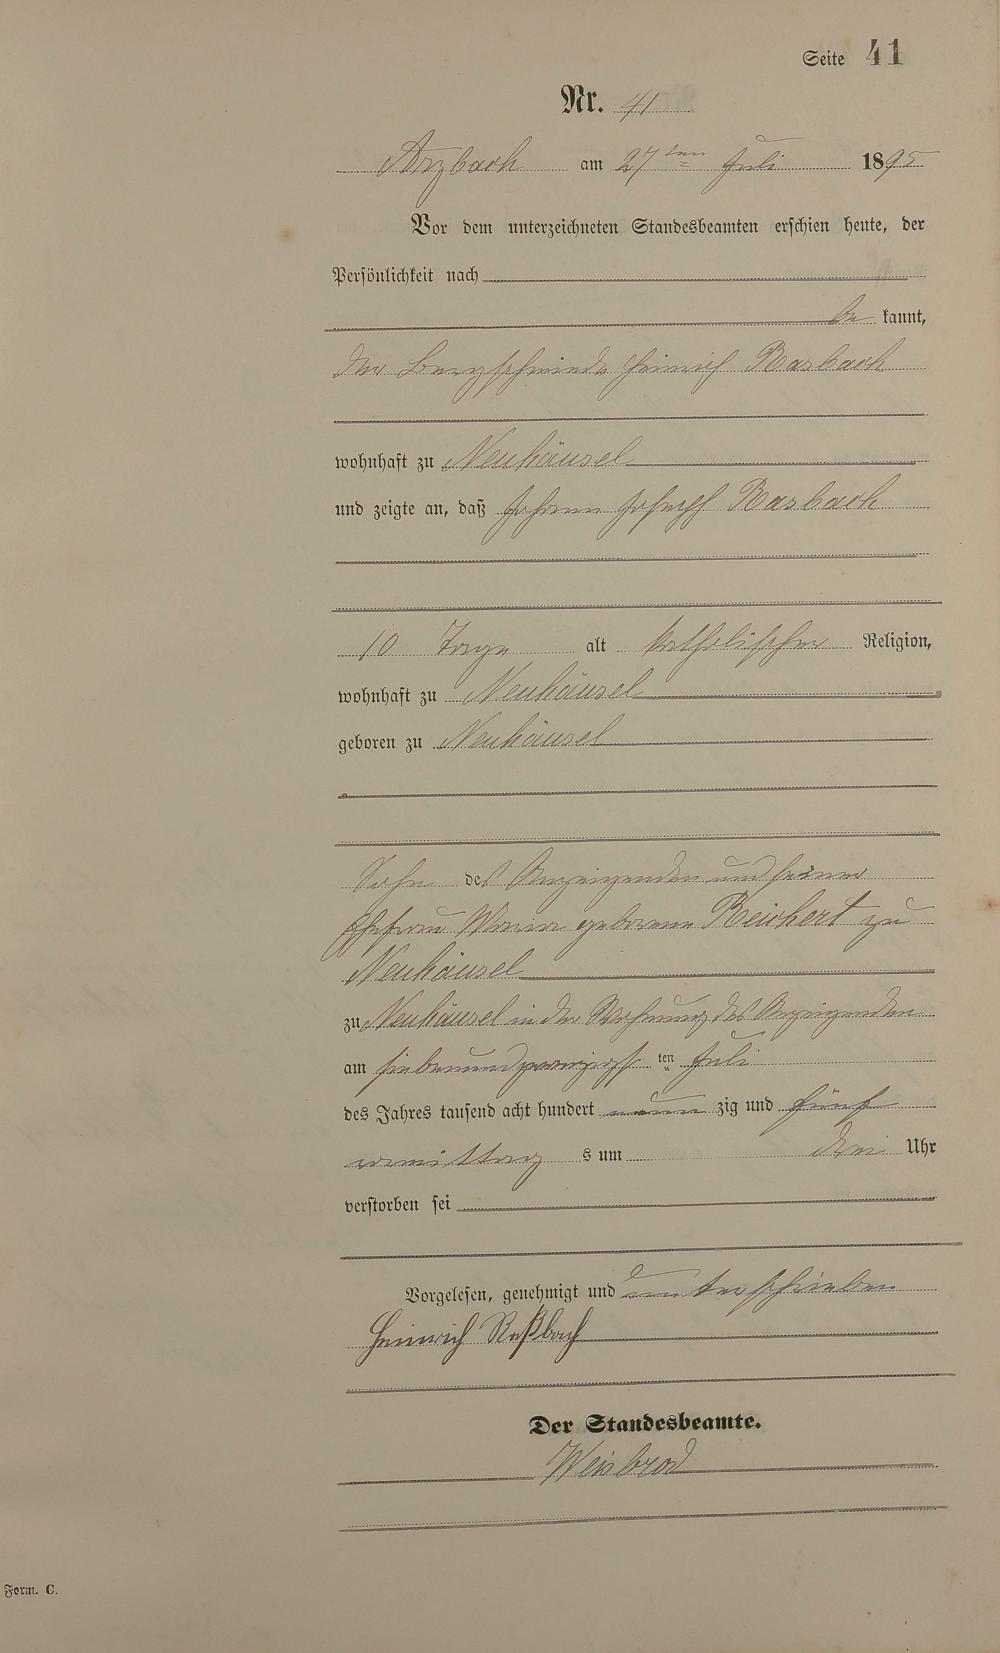 Seite 41
Nr. 41
Arzbach am 27ten Juli 1895
Vor dem unterzeichneten Standesbeamten erschien heute, der
Persönlichkeit nach
be kannt,
der Bergschmiede Heinrich Rasbach
wohnhaft zu Neuhäusel
und zeigte an, daß Johann Joseph Rasbach
10 Tage alt katholischer Religion,
wohnhaft zu Neuhäusel
geboren zu Neuhäusel
Sohn des Anzeigenden und seiner
Ehefrau Maria geborene Reichert zu
Neuhäusel
zu Neuhäusel in der Wohnung des Anzeigenden
am siebenundzwanzigsten Juli
des Jahres tausend acht hundert neun zig und fünf
vormittags um drei Uhr
verstorben sei
Vorgelesen, genehmigt und unterschrieben
Heinrich Raßbach
Der Standesbeamte.
Weisbrod
Form. C.